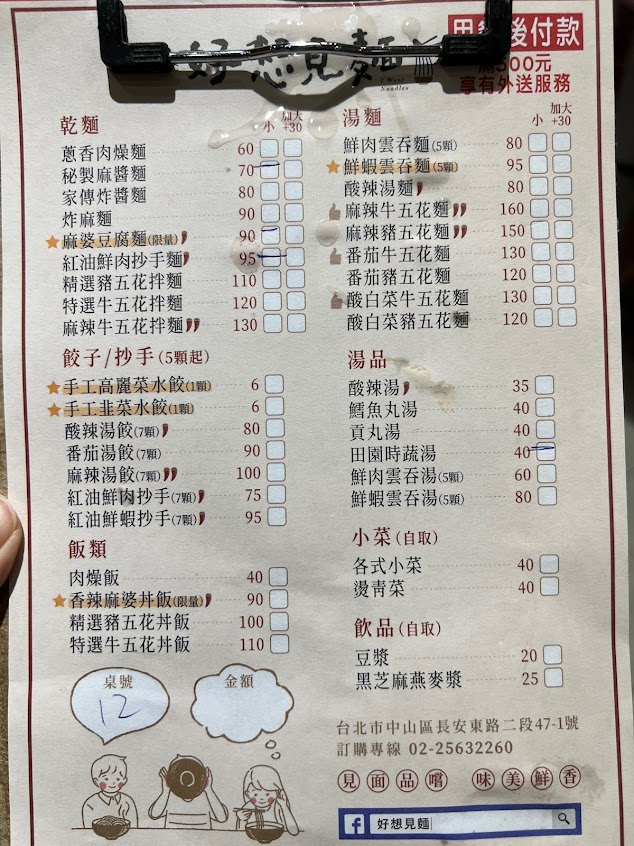 好想見麵
I Want
Noodles
用餐後付款
滿500元
享有外送服務
乾麵 小 加大+30
蔥香肉燥麵 60
秘製麻醬麵 70
家傳炸醬麵 80
炸麻麵 90
麻婆豆腐麵(限量) 90
紅油鮮肉抄手麵 95
精選豬五花拌麵 110
特選牛五花拌麵 120
麻辣牛五花拌麵 130
餃子/抄手(5顆起)
手工高麗菜水餃(1顆) 6
手工韭菜水餃(1顆) 6
酸辣湯餃(7顆) 80
番茄湯餃(7顆) 90
麻辣湯餃(7顆) 100
紅油鮮肉抄手(7顆) 75
紅油鮮蝦抄手(7顆) 95
飯類
肉燥飯 40
香辣麻婆丼飯(限量) 90
精選豬五花丼飯 100
特選牛五花丼飯 110
桌號
12
金額
湯麵 小 加大+30
鮮肉雲吞麵(5顆) 80
鮮蝦雲吞麵(5顆) 95
酸辣湯麵 80
麻辣牛五花麵 160
麻辣豬五花麵 150
番茄牛五花麵 130
番茄豬五花麵 120
酸白菜牛五花麵 130
酸白菜豬五花麵 120
湯品
酸辣湯 35
鱈魚丸湯 40
貢丸湯 40
田園時蔬湯 40
鮮肉雲吞湯(5顆) 60
鮮蝦雲吞湯(5顆) 80
小菜(自取)
各式小菜 40
燙青菜 40
飲品(自取)
豆漿 20
黑芝麻燕麥漿 25
台北市中山區長安東路二段47-1號
訂購專線 02-25632260
見面品嚐 味美鮮香
f 好想見麵